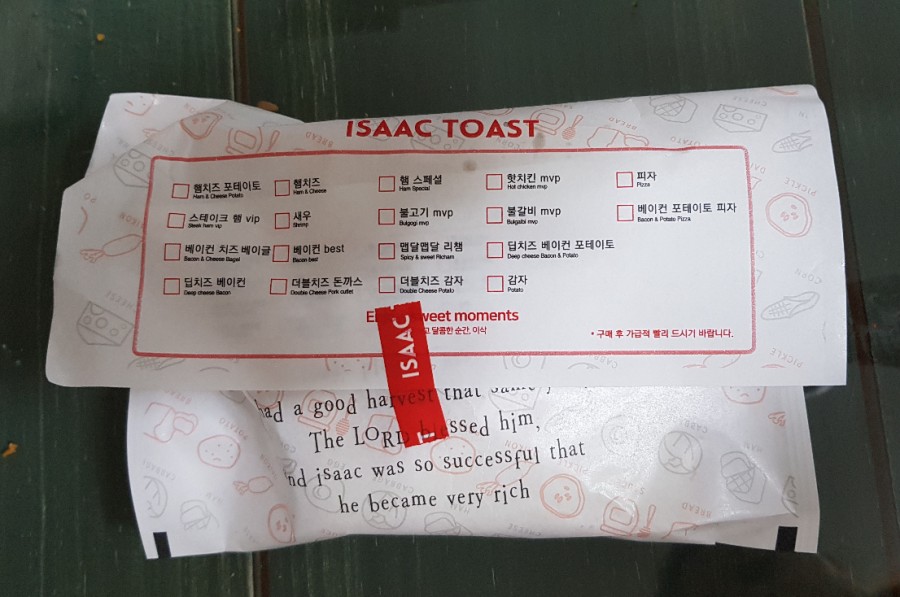 ISAAC TOAST
햄치즈 포테이토 햄치즈 햄 스페셜 핫치킨 mvp 피자
Ham & Cheese Potato Ham & Cheese Ham Special Hot chicken mvp Pizza
스테이크 햄 vip 새우 불고기 mvp 불갈비 mvp 베이컨 포테이토 피자
Steak ham vip Shrimp Bulgogi mvp Bulgalbi mvp Bacon & Potato Pizza
베이컨 치즈 베이글 베이컨 best 맵달맵달 리챔 딥치즈 베이컨 포테이토
Bacon & Cheese Bagel Bacon best Spicy & sweet Richam Deep cheese Bacon & Potato
딥치즈 베이컨 더블치즈 돈까스 더블치즈 감자 감자
Deep cheese Bacon Double Cheese Pork cutlet Double Cheese Potato Potato
weet moments
달콤한 순간, 이삭
* 구매 후 가급적 빨리 드시기 바랍니다.
ISAAC
had a good harvest that same
The LORD blessed him,
nd isaac was so successful that
he became very rich
BREAD
CHEESE
PICKLE
CORN
PICKLE
CABBAGE
HAM
BREAD